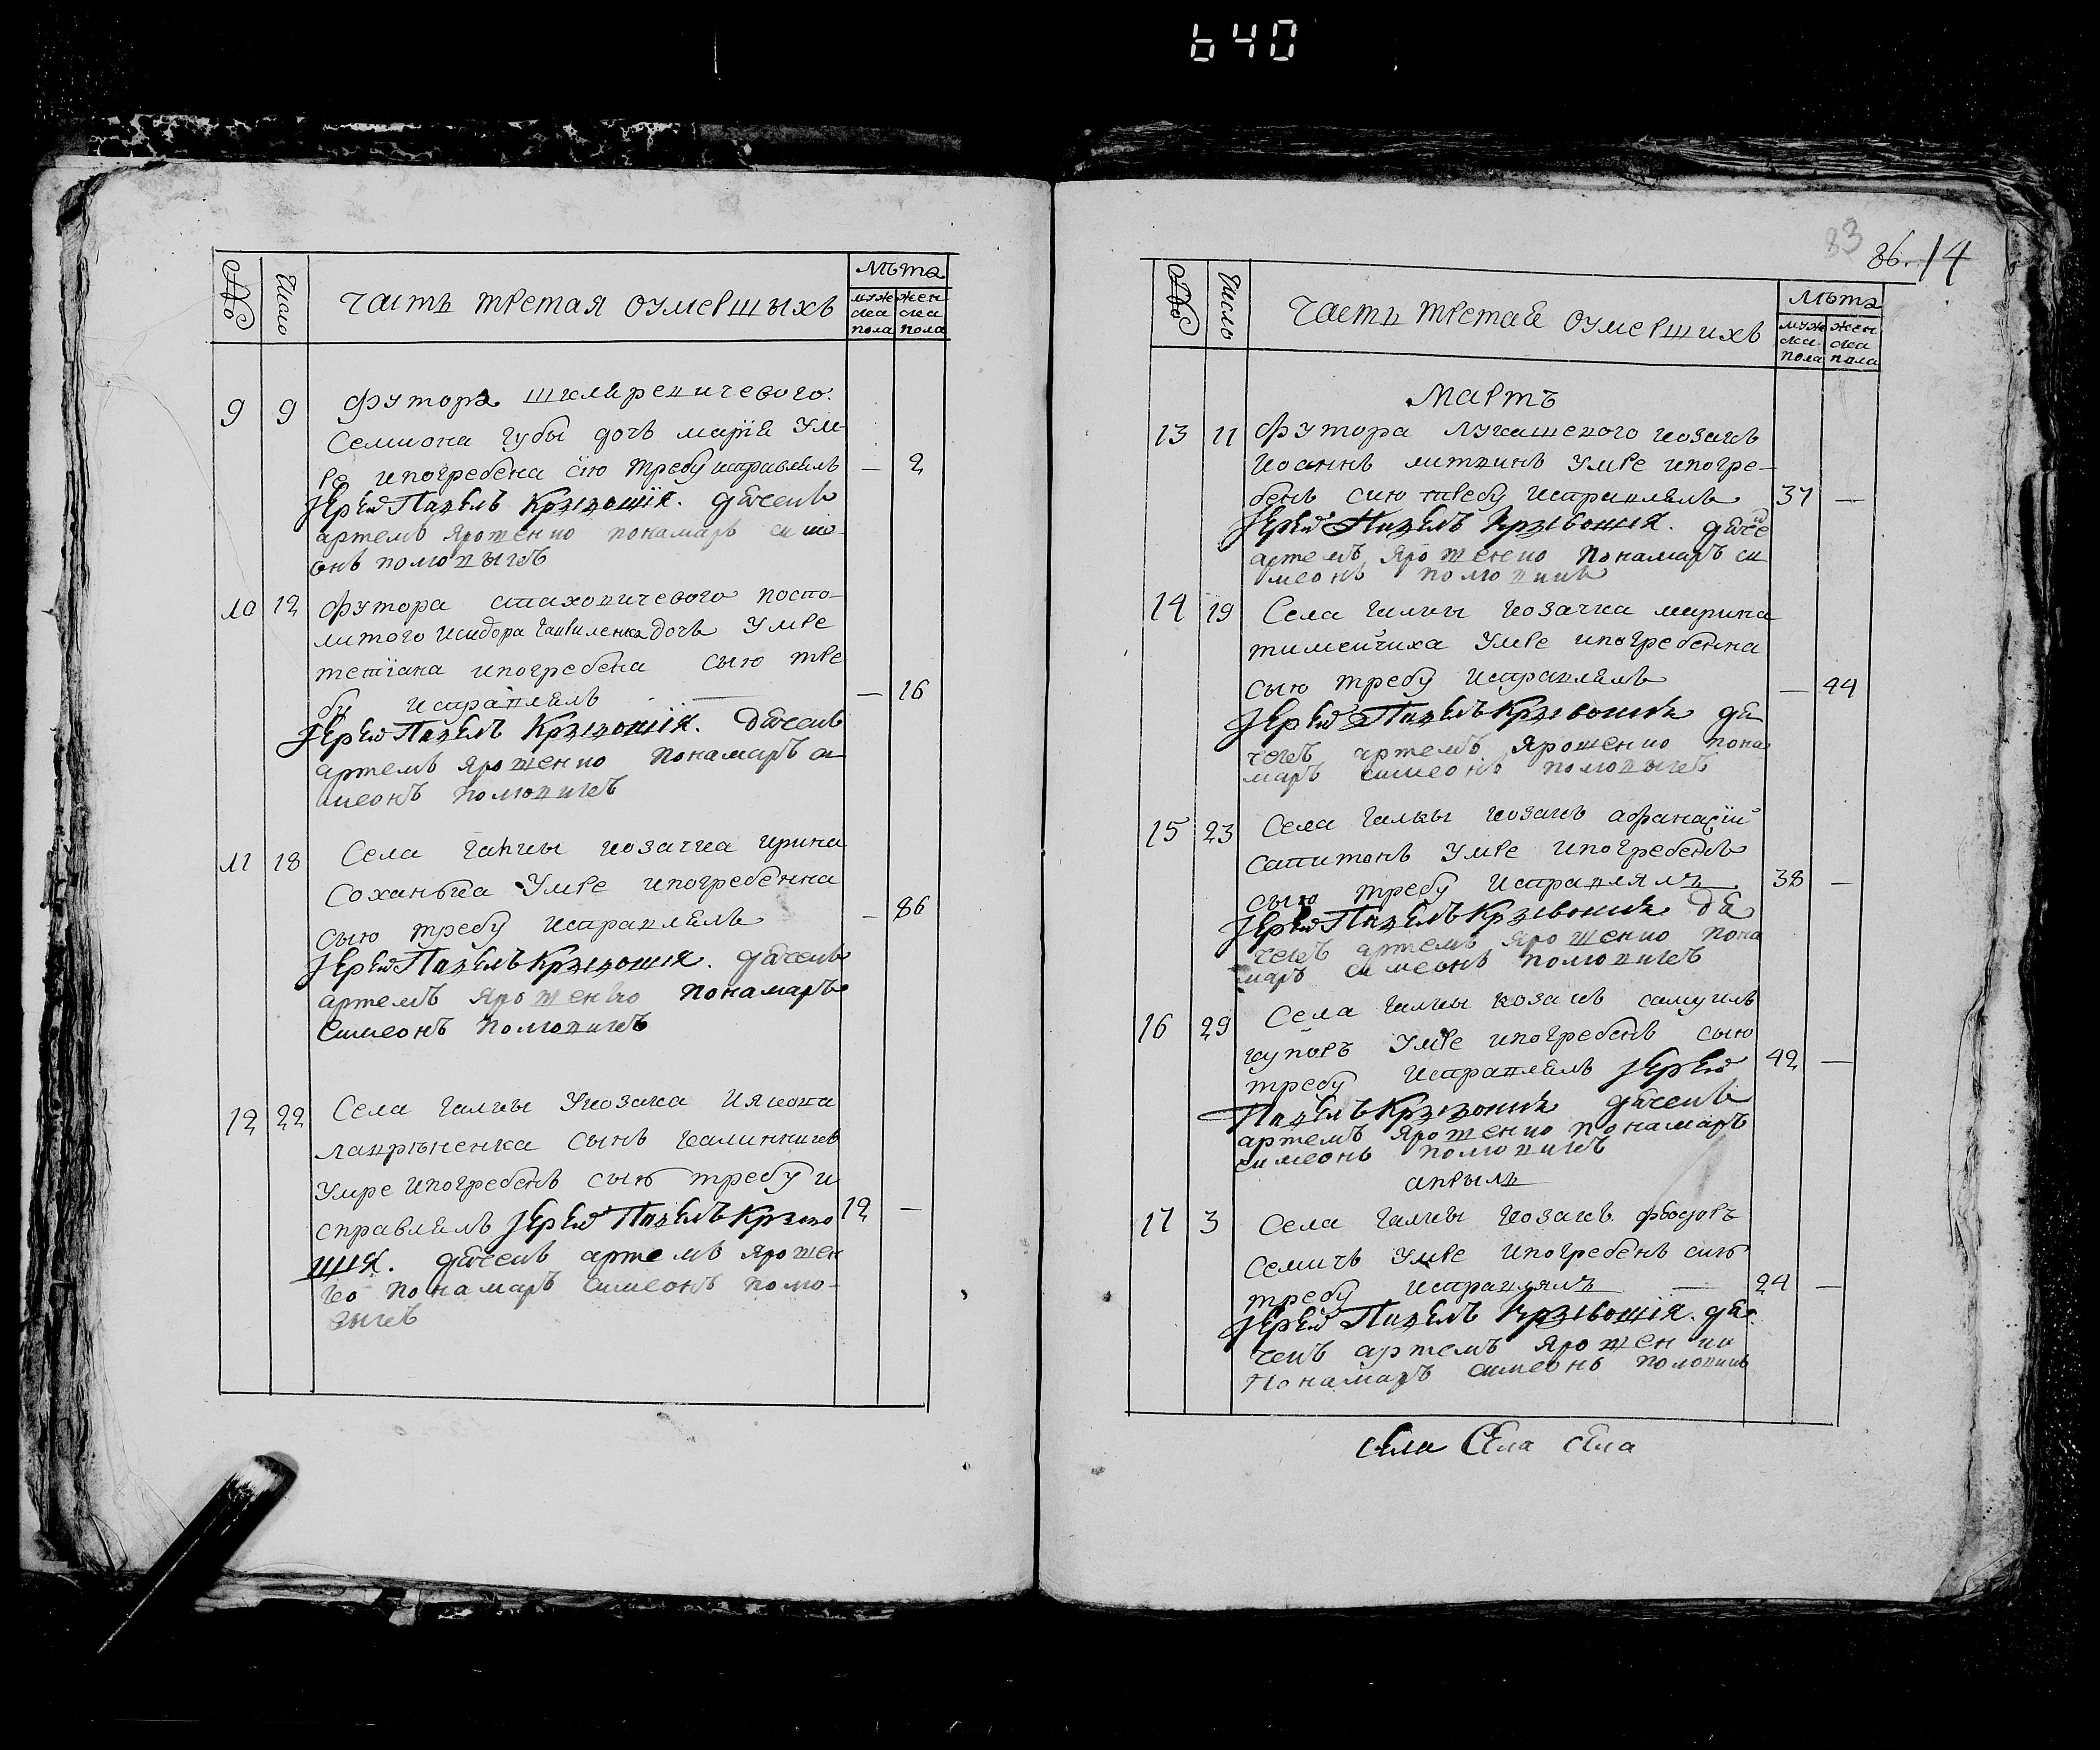 640
№
Число
часть третая оумершыхъ
Лѣта
муже
ска
пола
жен
ска
пола
9 9 Футора шкляревичевого
Семиона губы дочъ марїя Ум
ре ипогребена сїю требу исправлялъ — 2
Іерей Павелъ Кривошія. дячекъ
артемъ Ярошенко понамаръ симе
онъ полювыкъ
10 12 Футора стаховичевого поспо-
литого исидора гавриленка дочъ Умре
тетїана ипогребена сыю тре
бу исправлялъ — 16
Іерей Павелъ Кривошія. Дячекъ
артемъ Ярошенко понамаръ си
меонъ полювикъ
11 18 Села галки козачка ирина
Соханька Умре ипогребенна
сыю требу исправлялъ — 86
Іерей Павелъ Кривошия. дячекъ
артемъ Ярошенко понамаръ
Симеонъ полювикъ
12 22 Села галки Укозака Иякова
лаврѣненка сынъ калинникъ
Умре ипогребенъ сыю требу и
справлялъ Іерей Павелъ Криво 12 —
шия. дячекъ артемъ Ярошен
ко понамаръ симеонъ полю-
выкъ
83
86. 14
№
Число
Часть третая оумершихъ
Лѣта
муже
ска
пола
жен
ска
пола
Мартъ
13 11 Футора лукашевого козакъ
иоаннъ литвинъ Умре ипогре-
бенъ сию требу исправлялъ 37 —
Іерей Павелъ Кривошия. дяче
артемъ Ярошенко понамаръ си
меонъ полювикъ
14 19 Села галки козачка марина
тимейчиха Умре ипогребенна
сыю требу исправлялъ — 44
Іерей Павелъ Кривошия дя
чекъ артемъ Ярошенко пона
маръ симеонъ полювыкъ
15 23 Села галки козакъ афанасїй
сапитонъ Умре ипогребенъ
сыю требу исправлялъ 38 —
Іерей Павелъ Кривошия дя
чекъ артемъ Ярошенко пона
маръ симеонъ полювикъ
16 29 Села галки козакъ самуилъ
купоръ Умре ипогребенъ сыю
требу исправлялъ Іерей 42 —
Павелъ Кривошия дячекъ
артемъ Ярошенко понамаръ
симеонъ полювикъ
апрыль
17 3 Села галки козакъ феодоръ
Семичъ Умре ипогребенъ сию
требу исправлялъ — 24 —
Іерей Павелъ Кривошія. дя
чекъ артемъ Ярошенко
понамаръ симеонъ полювикъ
села Села села